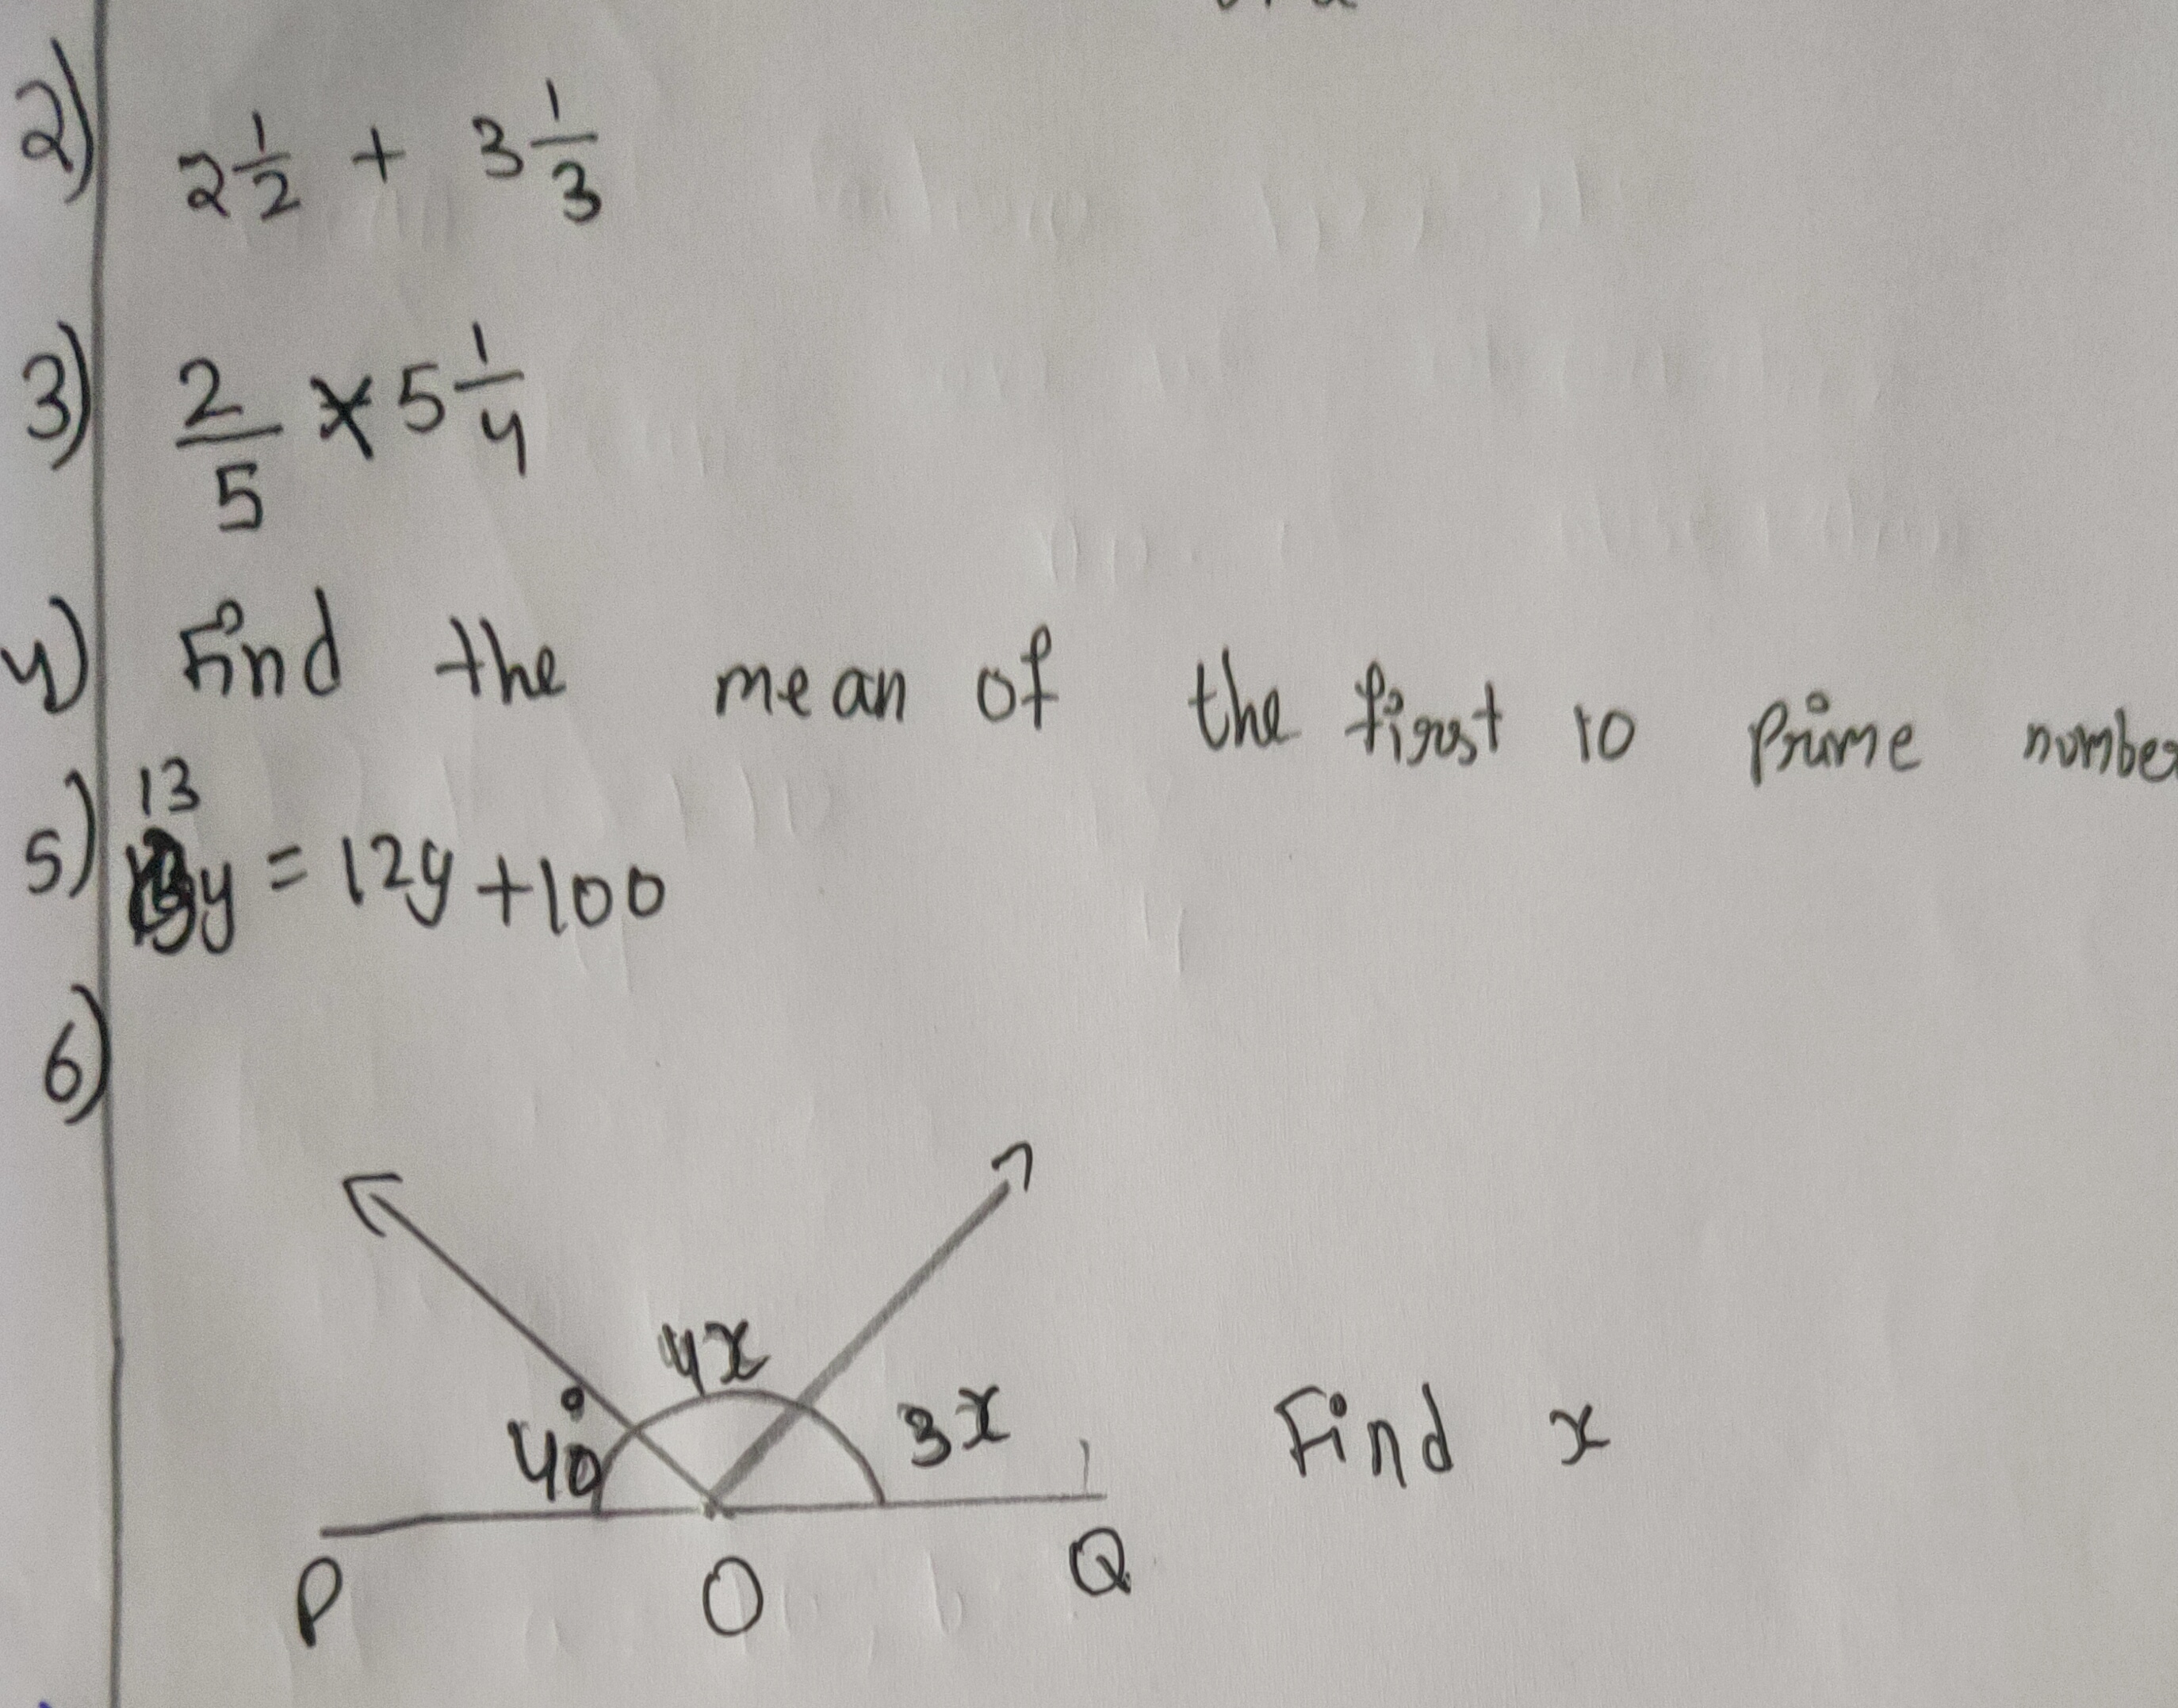 2) 2 1/2 + 3 1/3
3) 2/5 × 5 1/4
4) Find the mean of the first 10 Prime number
13
5) y = 12y + 100
6)
4x
40° 3x Find x
P O Q